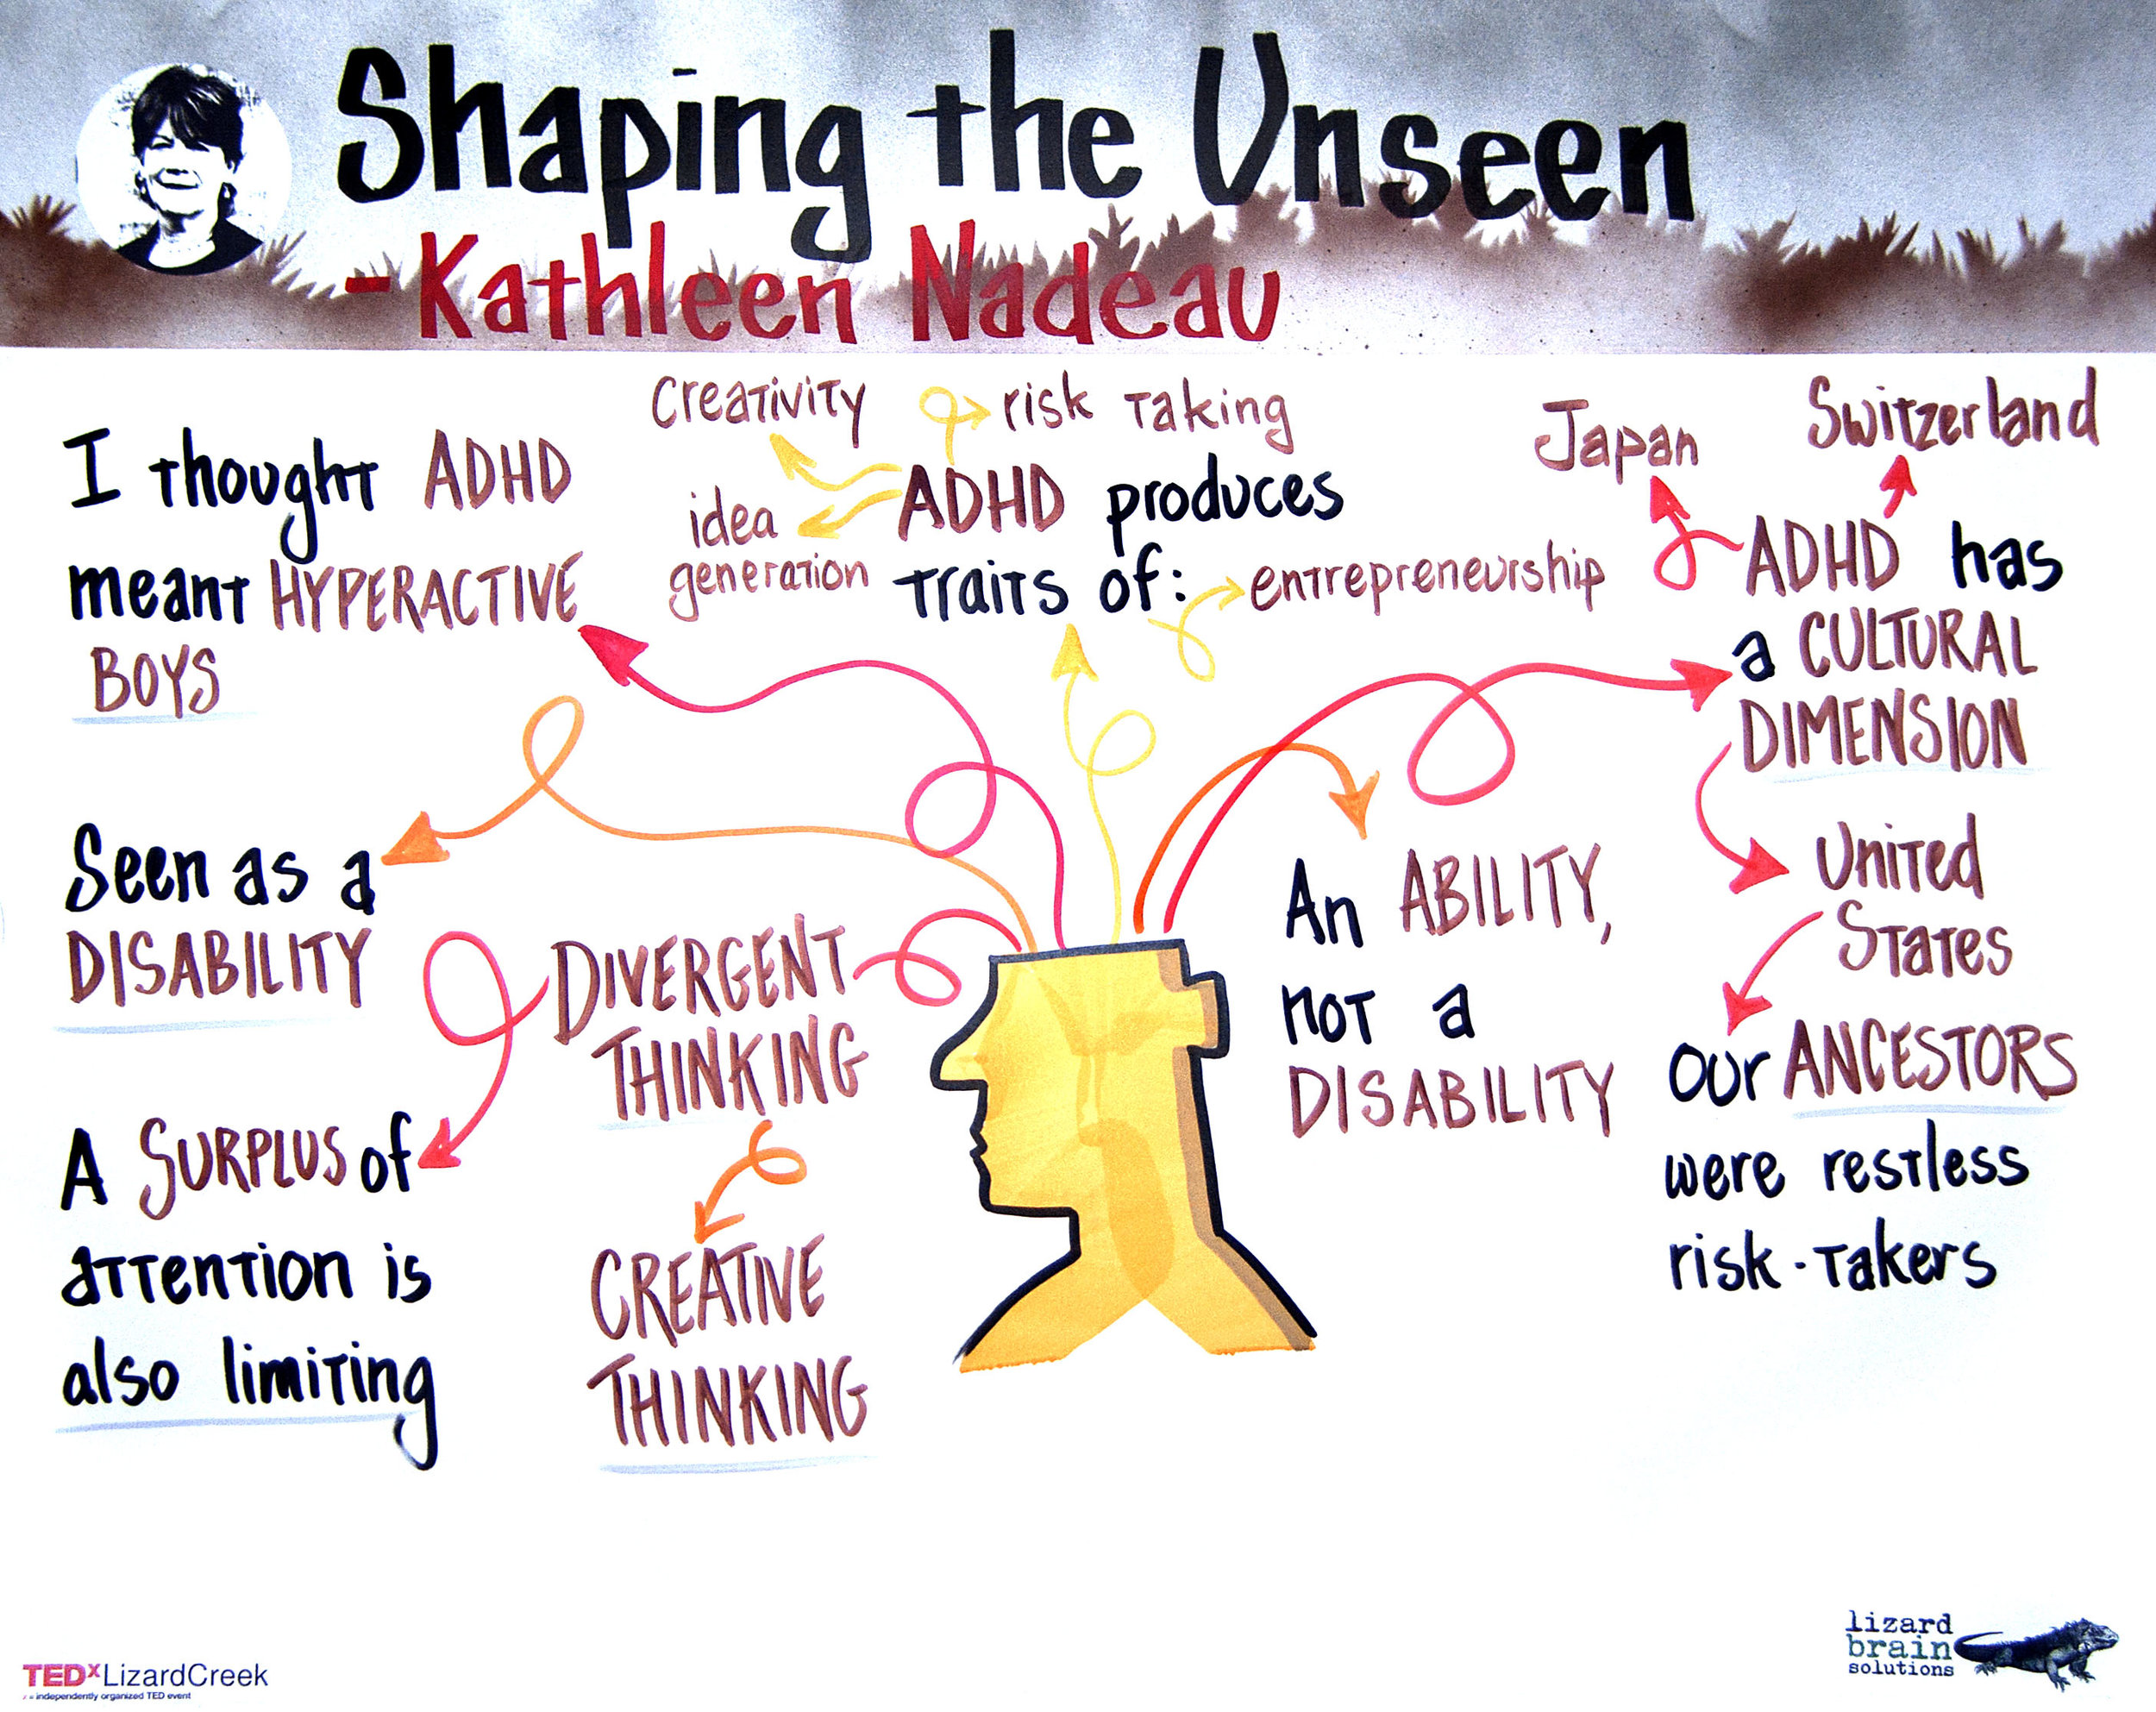 Shaping the Unseen
-Kathleen Nadeau
I thought ADHD
meant HYPERACTIVE
BOYS
Seen as a
DISABILITY
A SURPLUS of
attention is
also limiting
DIVERGENT
THINKING
CREATIVE
THINKING
Creativity
risk taking
idea
generation
ADHD produces
traits of:
entrepreneurship
An ABILITY,
not a
DISABILITY
Japan
Switzerland
ADHD has
a CULTURAL
DIMENSION
United
States
our ANCESTORS
were restless
risk-takers
TEDxLizardCreek
x = independently organized TED event
lizard
brain
solutions